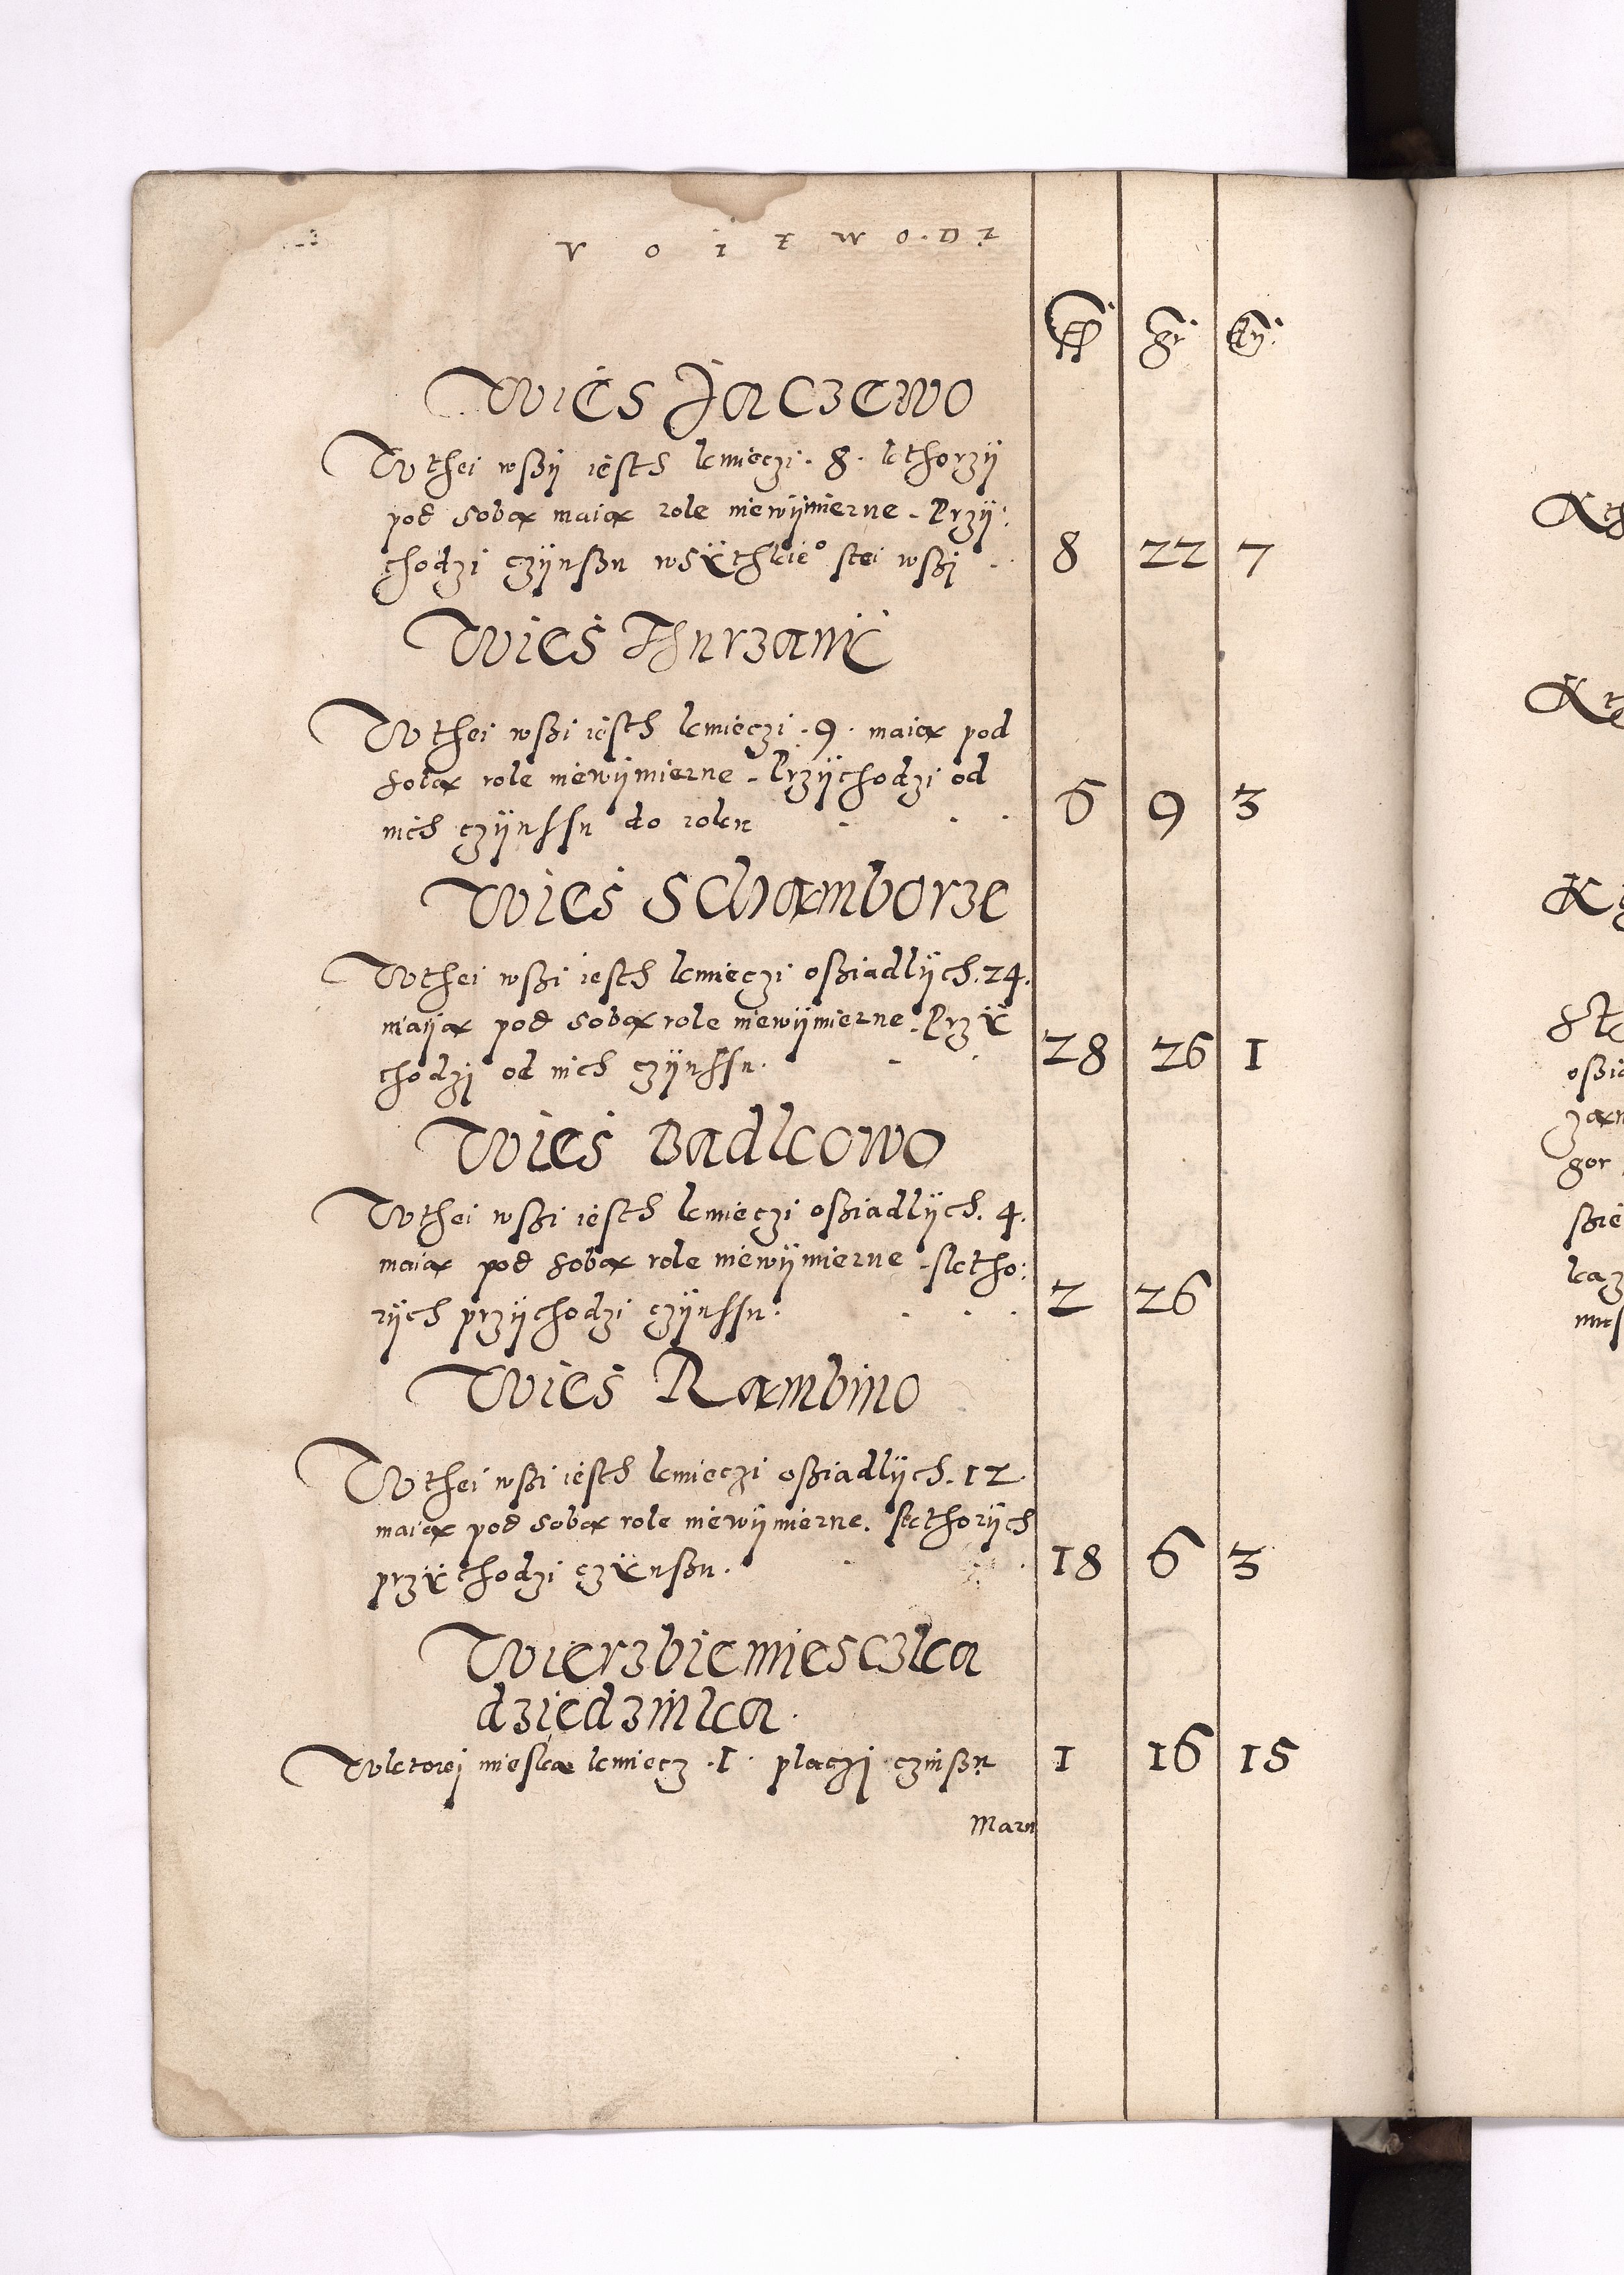 V o i t w o d z
fl gr dn
Wies Jaczewo
W thei wßÿ iesth kmieczi · 8 · kthorzÿ
pod sobą maią role niewÿmierne - Przÿ:
chodzi czÿnßu wsÿthkie° stei wßi 8 22 7
Wies Thurzanÿ
W thei wßi iesth kmieczi · 9 · maią pod
sobą role niewÿmierne - Przÿchodzi od
nich czÿnssu do roku 6 9 3
Wies Schamborze
W thei wßi iesth kmieczi oßiadlÿch · 24 ·
maÿą pod sobą role niewÿmierne - Przÿ
chodzi od nich czÿnssu · 28 26 1
Wies Badkowo
W thei wßi iesth kmieczi oßiadlÿch · 4 ·
maią pod sobą role niewÿmierne - sktho:
rÿch przÿchodzi czÿnssu · 2 26
Wies Rambino
W thei wßi iesth kmieczi oßiadlÿch · 12
maią pod sobą role niewÿmierne · skthorÿch
przÿchodzi czÿnßu · 18 6 3
Wierzbie miesczka
dziedzinka ·
W ktorej mieska kmiecz · 1 · placzi czinßu 1 16 15
Maru